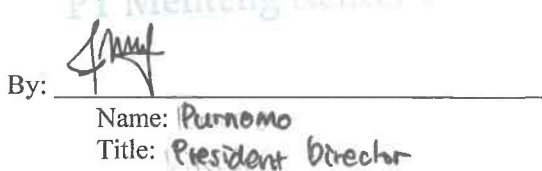 PT Menteng
By:
Name: Purnomo
Title: President Director